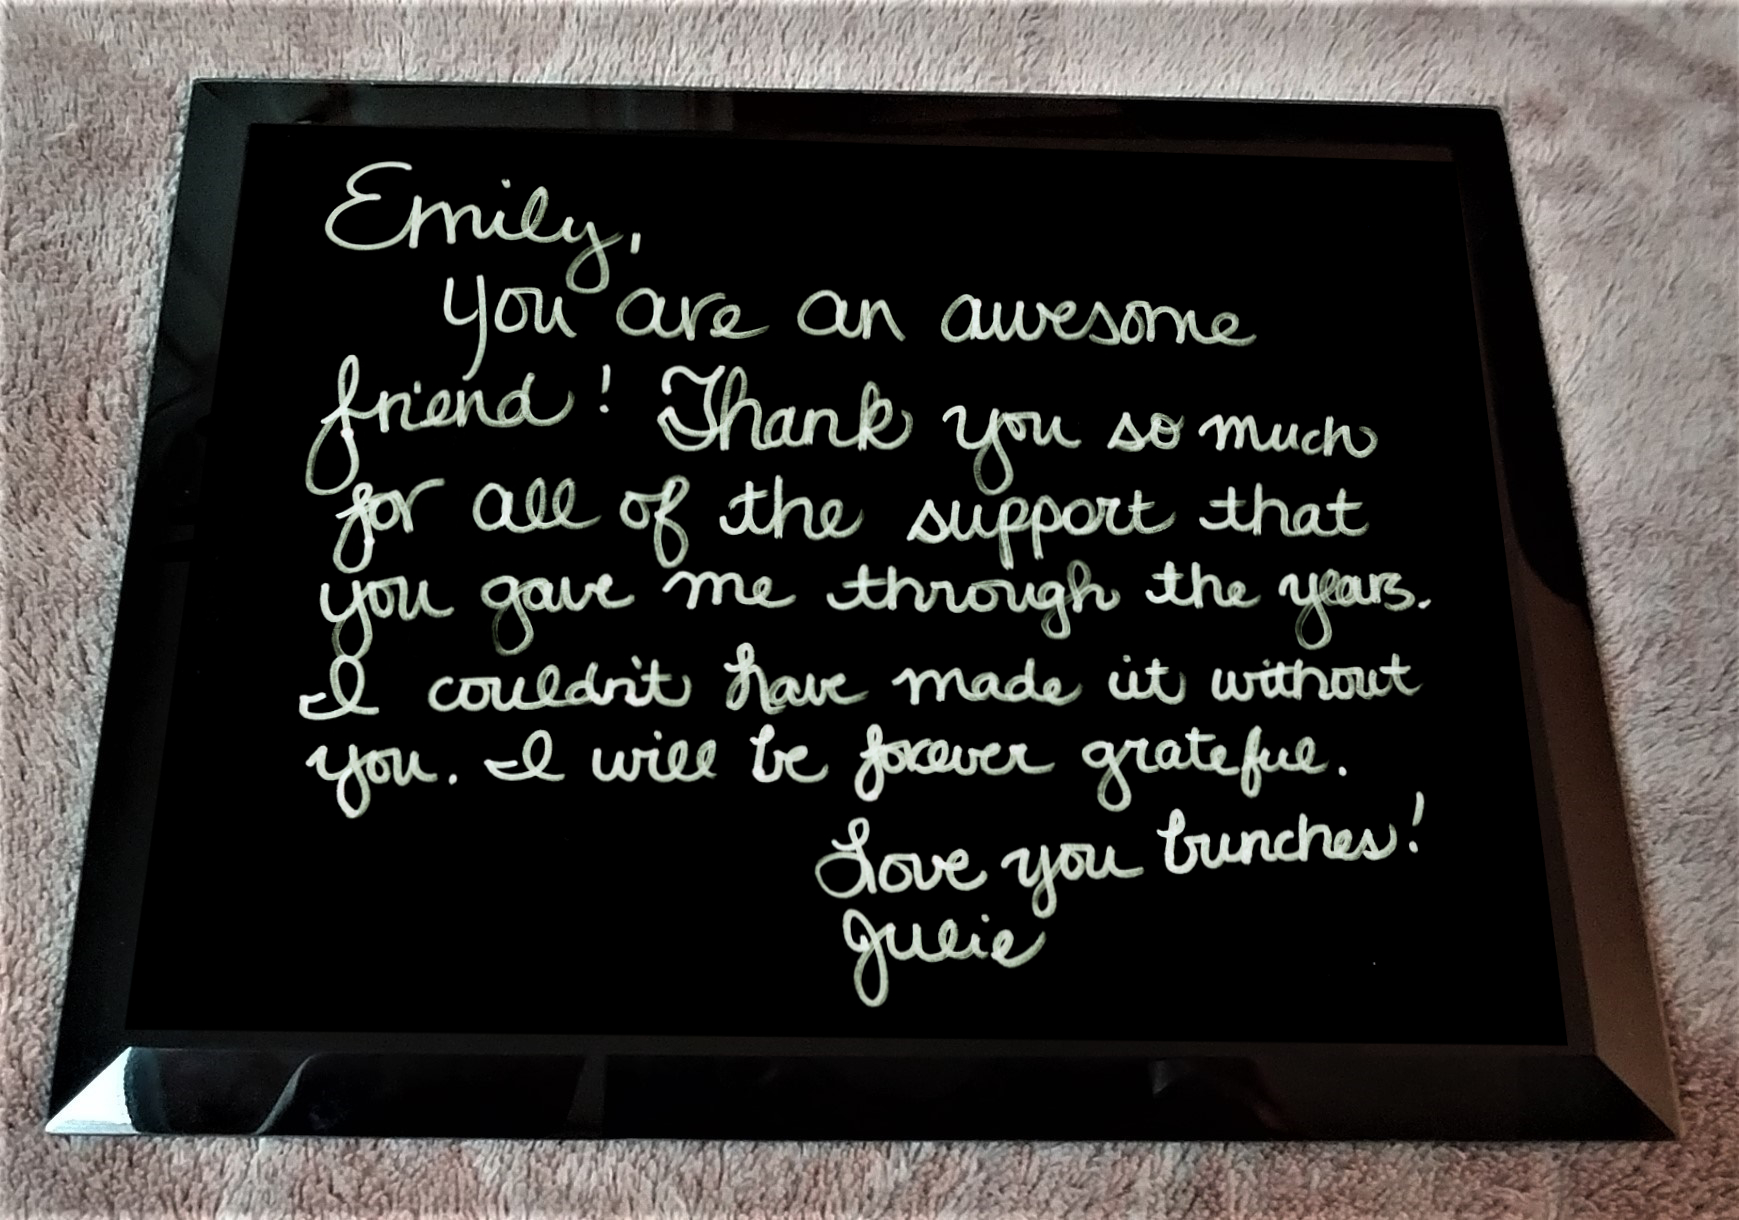 Emily,
You are an awesome
friend! Thank you so much
for all of the support that
you gave me through the years.
I couldn't have made it without
you. I will be forever grateful.
Love you bunches!
Julie